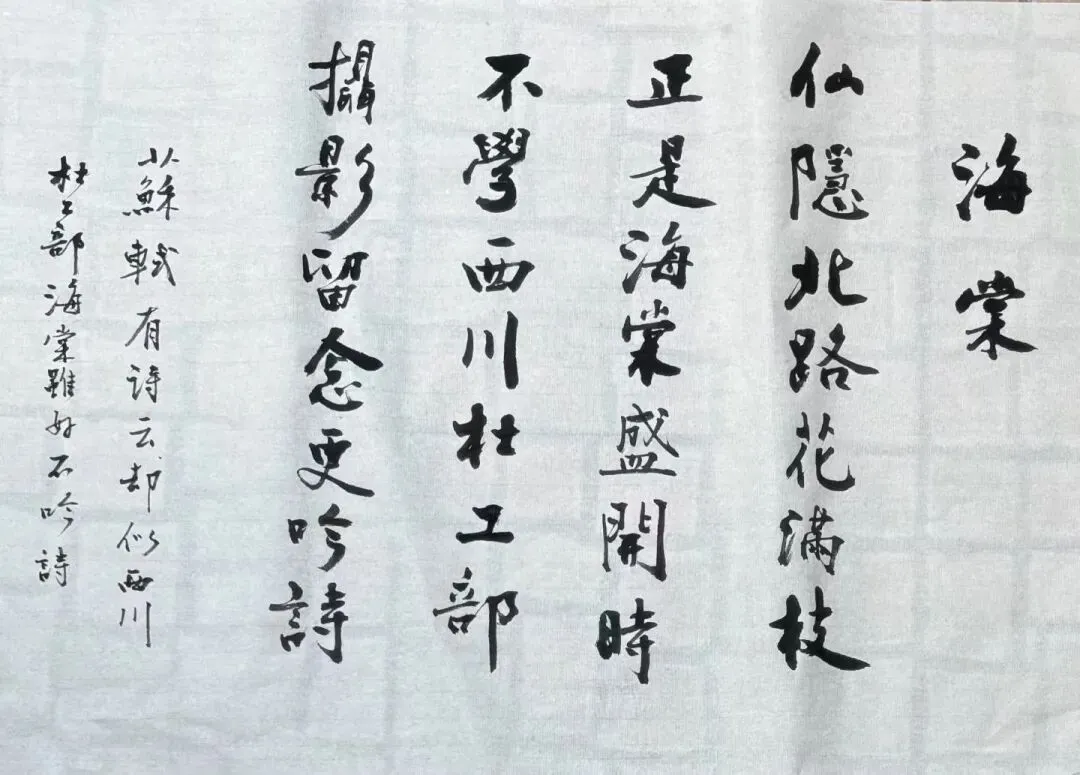 海棠
仙隱北路花滿枝
正是海棠盛開時
不學西川杜工部
攝影留念更吟詩
蘇軾有詩云却似西川
杜工部海棠雖好不吟詩